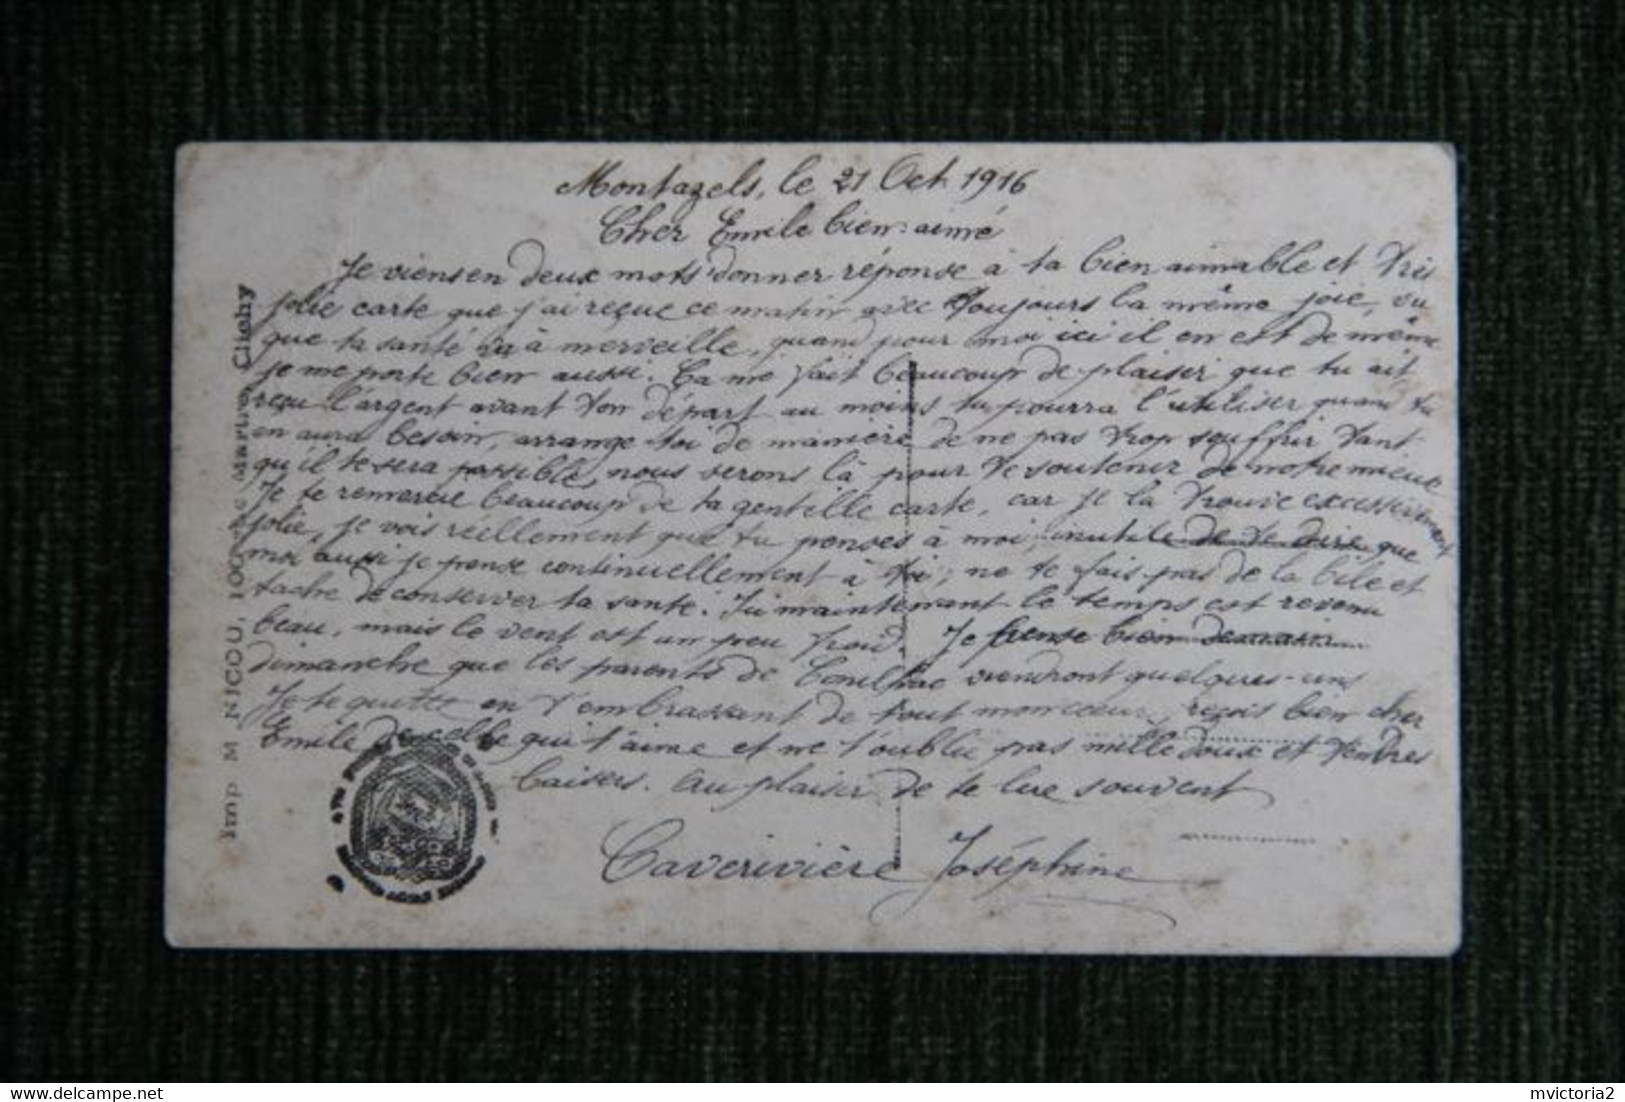 Montazels, le 21 Oct 1916
Cher Emile bien-aimé
Je viens en deux mots donner réponse à ta bien aimable et très
jolie carte que j'ai reçue ce matin avec toujours la même joie, vu
que ta santé va à merveille, quand pour moi ici il en est de même
je me porte bien aussi. Ça me fait beaucoup de plaisir que tu ait
reçu l'argent avant ton départ au moins tu pourra l'utiliser quand tu
en aura besoin, arrange-toi de manière de ne pas trop souffrir tant
qu'il te sera possible, nous serons là pour te soutenir de notre mieux
Je te remercie beaucoup de ta gentille carte, car je la trouve excessivement
jolie, je vois réellement que tu penses à moi, inutile de te dire que
moi aussi je pense continuellement à toi; ne te fais pas de la bile et
tache de conserver ta santé. Ici maintenant le temps est revenu
beau, mais le vent est un peu froid. Je pense bien demain
dimanche que les parents de viendront quelques-uns
Je te quitte en t'embrassant de tout mon cœur, reçois bien cher
Emile de celle qui t'aime et ne t'oublie pas mille doux et tendres
baisers. Au plaisir de te lire souvent
Caverivière Joséphine
Imp M. NICOU, 100 Martre, Clichy
mvictoria2
www.delcampe.net